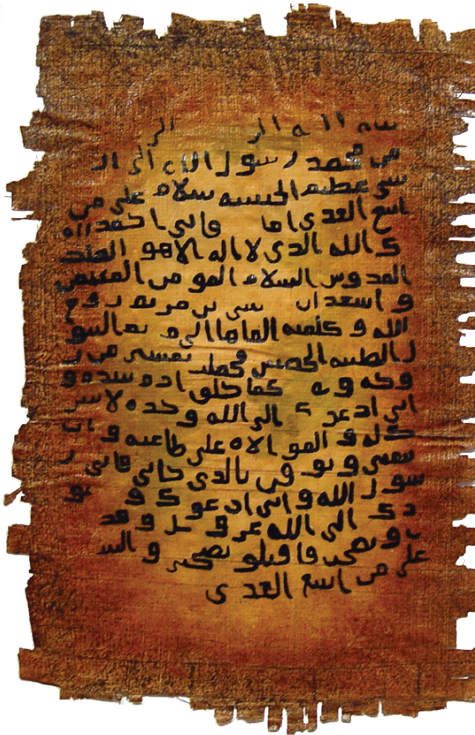 سم الله الر الر
من محمد رسول الله الى الـ
سى عظيم الحبسه سلام على من
اتبع الهدى اما فانى احمد
ك الله الدى لا اله الا هو الملك
القدوس السلام المومن المهيمن
و اسهد ان سى بن مريم روح
الله و كلمته القاها الى مريم البتو
ل الطيبه الحصينه فحملت بعيسى من ر
وحه و كما خلق ادم بيده و
انى ادعوك الى الله وحده لا سر
يك له و الموالاه على طاعته و ان
تتبعنى و توقن بالدى جانى فانى ر
سول الله و انى ادعوك و
دك الى الله عز و جل و قد
و نصحت فاقبلو نصيحتى و السـ
على من اتبع الهدى